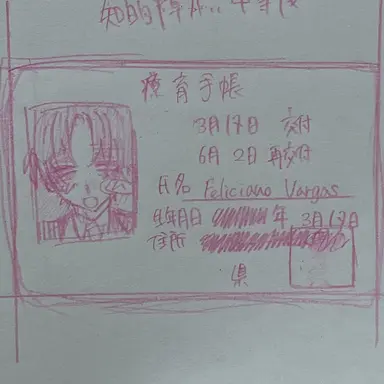 療育手帳
3月17日 交付
6月 2日 再交付
氏名 Feliciano Vargas
生年月日 年 3月17日
住所
県